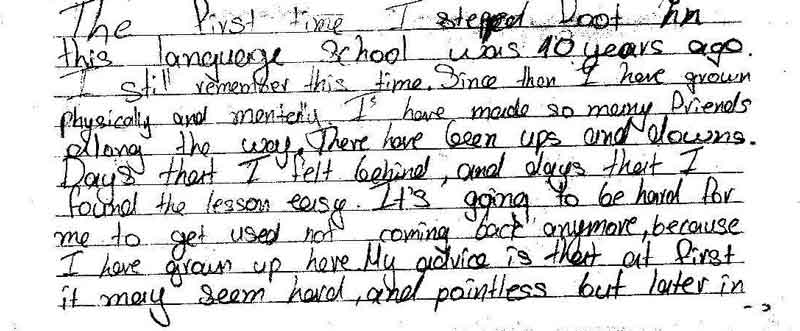 The first time I stepped Foot in
this language school was 10 years ago.
I still remember this time. Since then I have grown
physically and mentally. I's have made so many friends
allong the way. There have been ups and downs.
Days that I felt behind, and days that I
found the lesson easy. It's going to be hard for
me to get used not coming back anymore, because
I have grown up here. My advice is that at first
it may seem hard, and pointless but later in